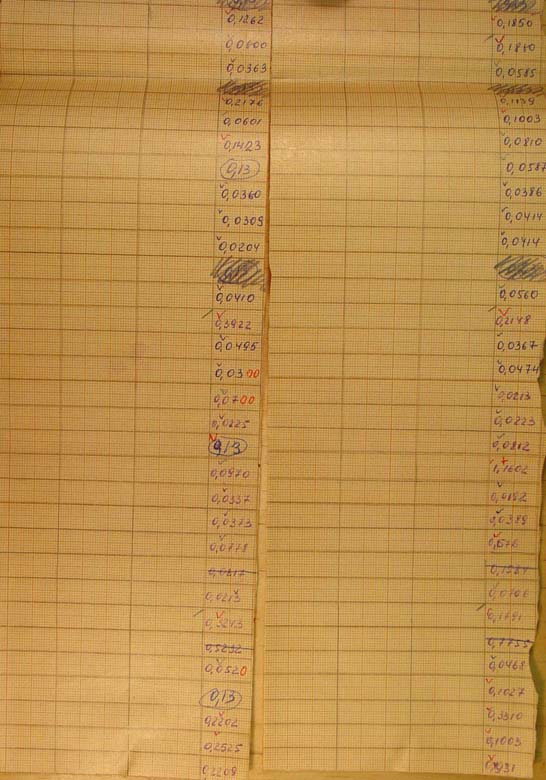 0,1262
0,0600
0,0363
0,2176
0,0601
0,1423
0,13
0,0360
0,0309
0,0204
0,0410
0,3922
0,0495
0,0300
0,0700
0,0225
0,13
0,0970
0,0337
0,0373
0,0778
0,0317
0,0213
0,3243
0,5232
0,0520
0,13
0,2202
0,2525
0,2209
0,1850
0,1810
0,0585
0,1139
0,1003
0,0810
0,0587
0,0386
0,0414
0,0414
0,0560
0,2148
0,0367
0,0474
0,0213
0,0223
0,0812
1,1602
0,0389
0,7755
0,0468
0,1027
0,3310
0,1003